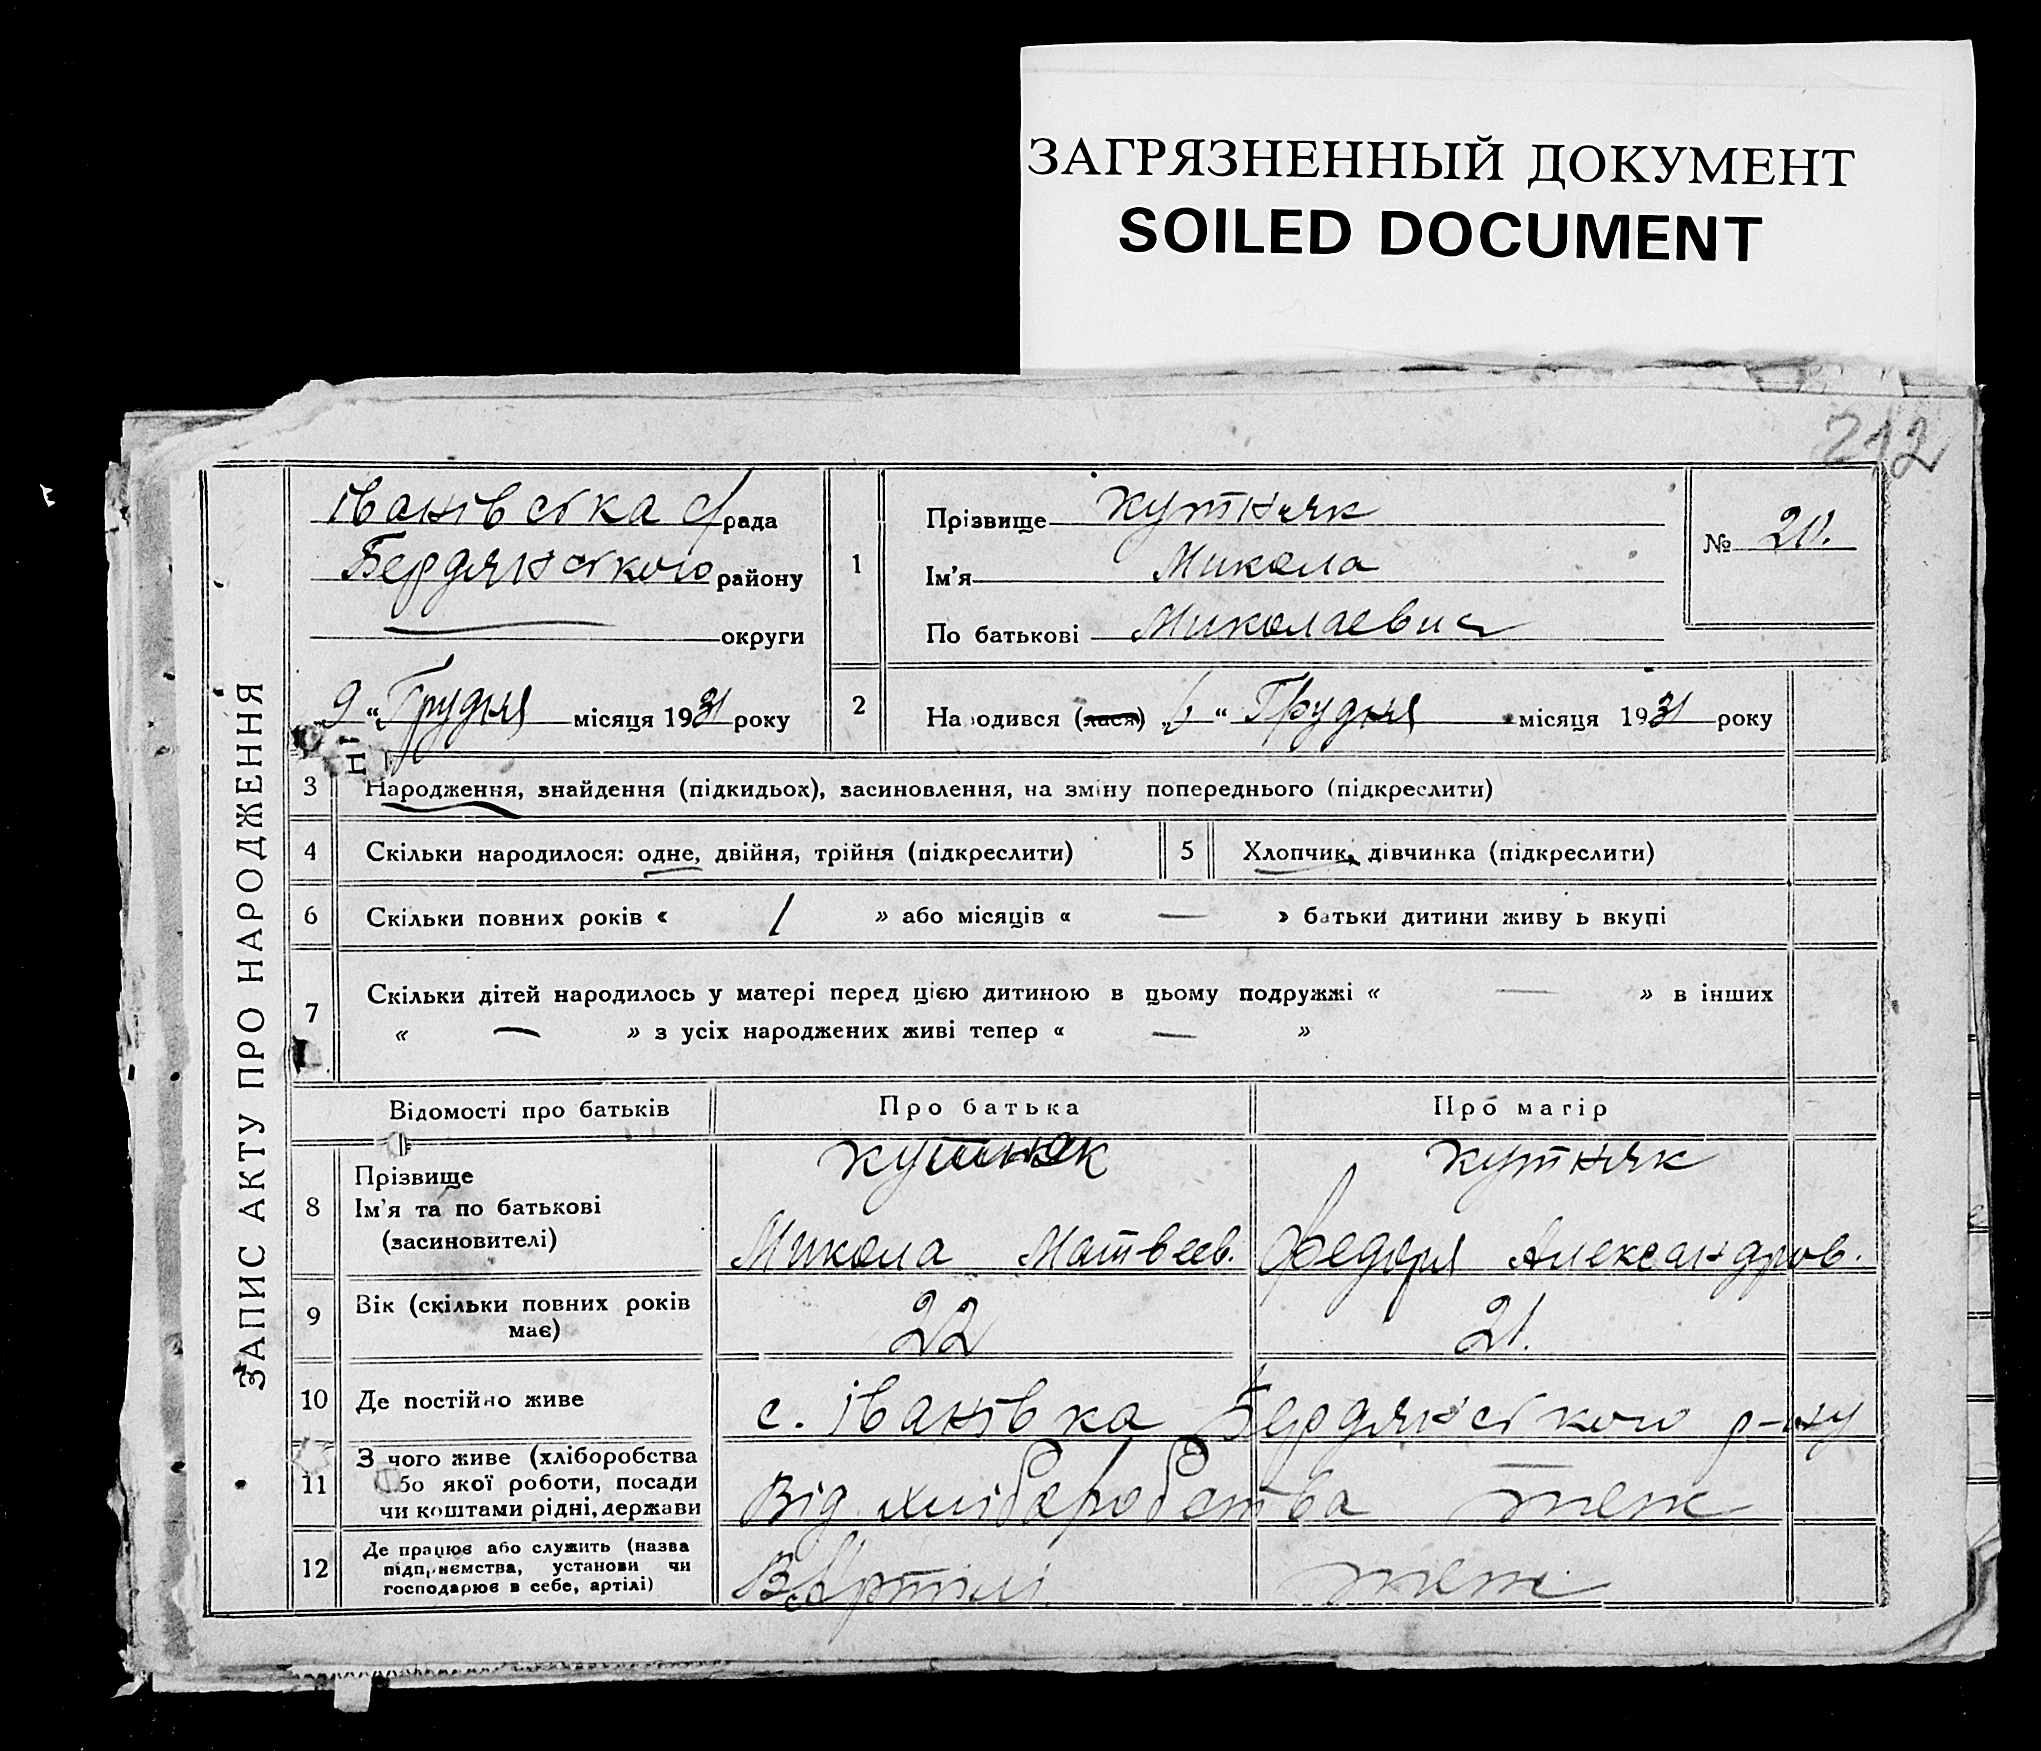 ЗАГРЯЗНЕННЫЙ ДОКУМЕНТ
SOILED DOCUMENT
212
ЗАПИС АКТУ ПРО НАРОДЖЕННЯ
Іванівська с/рада
Бердянського району
округи
„9“ Грудня місяця 1931 року
1
Прізвище Кутняк
Ім’я Микола
По батькові Миколаевич
№
2
Народився (лася) „ “ Грудня місяця 1931 року
3 Народження, знайдення (підкидьох), засиновлення, на зміну попереднього (підкреслити)
4 Скільки народилося: одне, двійня, трійня (підкреслити) 5 Хлопчик, дівчинка (підкреслити)
6 Скільки повних років « 1 » або місяців « — » батьки дитини живу ь вкупі
7 Скільки дітей народилось у матері перед цією дитиною в цьому подружжі « — » в інших
« — » з усіх народжених живі тепер « — »
Відомості про батьків Про батька Про матір
8 Прізвище Кутняк Кутняк
Ім’я та по батькові
(засиновителі) Микола Матвеев. Федора Александров.
9 Вік (скільки повних років
має) 22 21.
10 Де постійно живе с. Іванівка Бердянського р-ну
11 З чого живе (хліборобства
або якої роботи, посади
чи коштами рідні, держави Від хліборобства теж
12 Де працює або служить (назва
підприємства, установи чи
господарює в себе, артілі) В Артілі теж